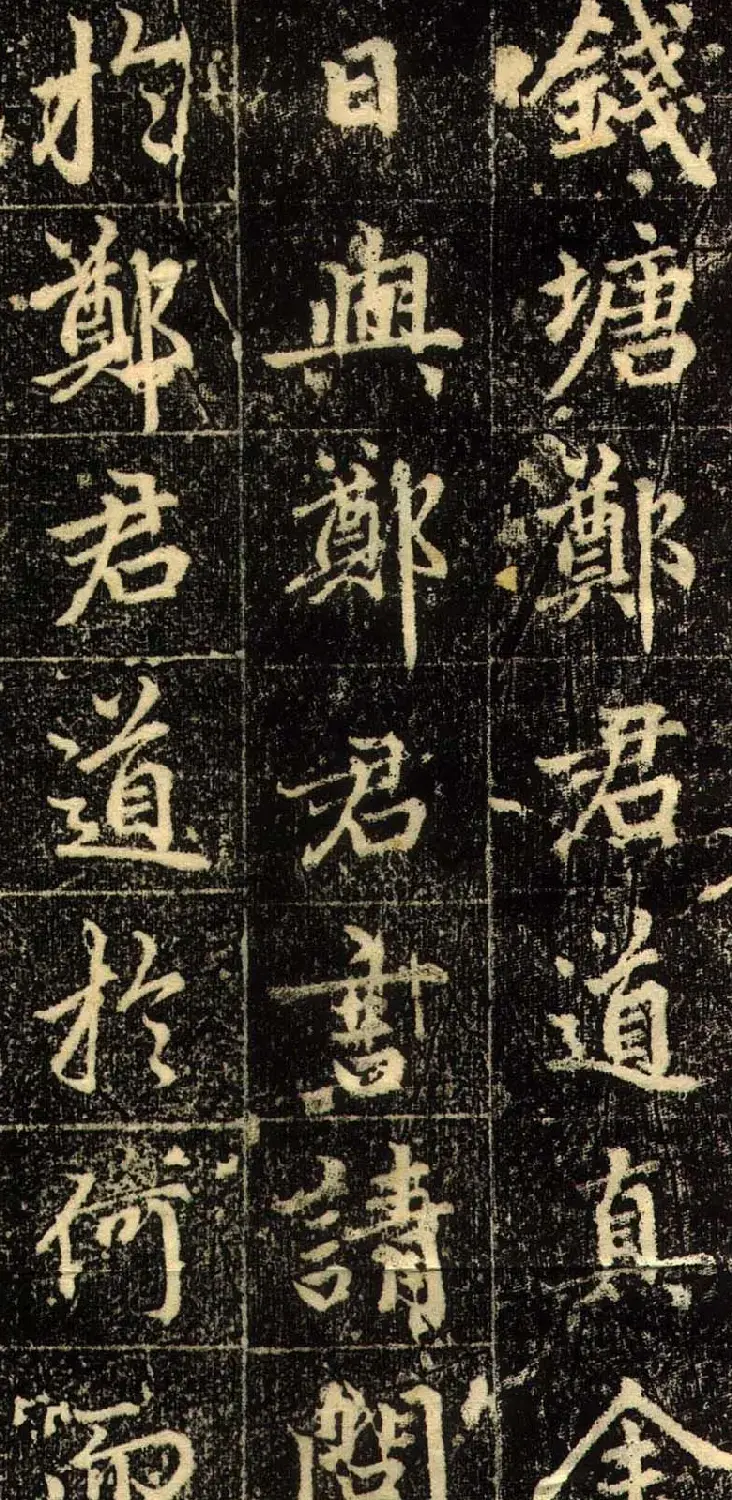 錢塘鄭君道真
日與鄭君書請問
於鄭君道於何而